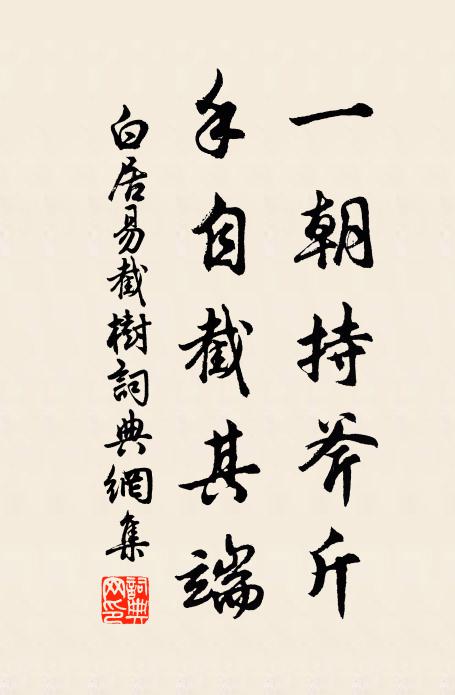 一朝持斧斤
手自截其端
白居易截樹詞典網集
詞典網印